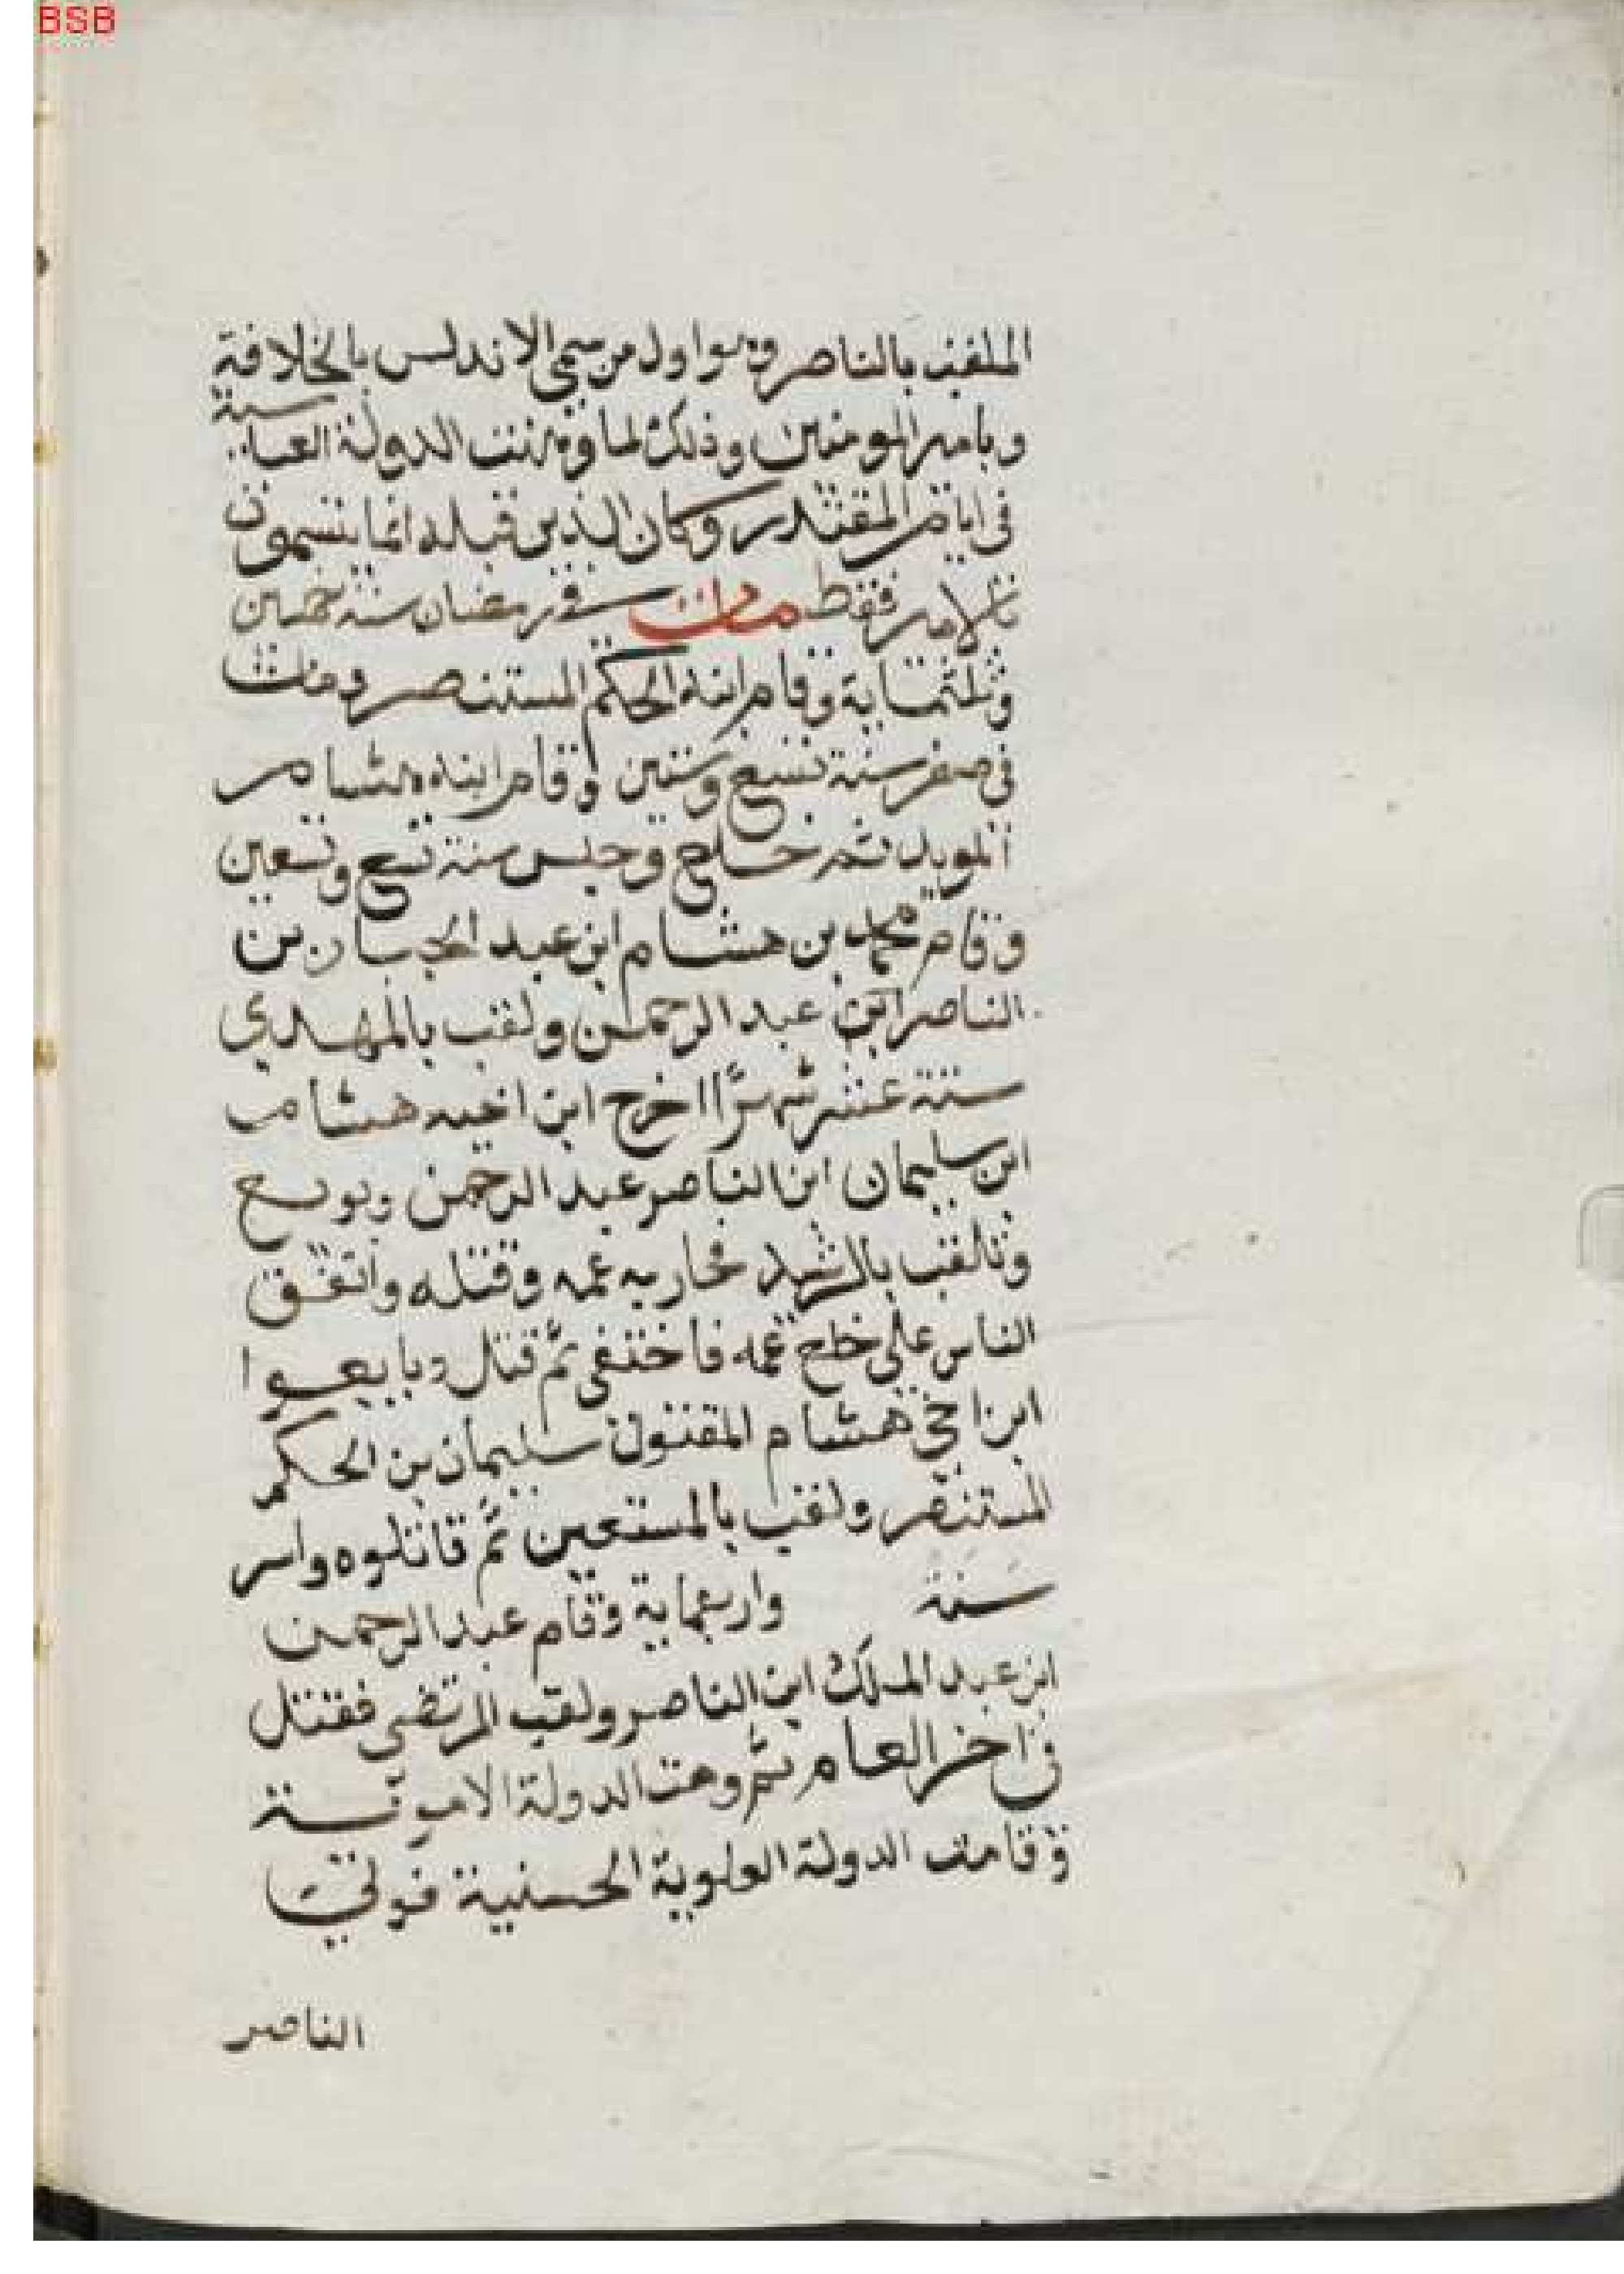 BSB
الملقب بالناصر وهو اول من سمى الاندلس بالخلافة
وبامير المومنين وذلك لما وهنت الدولة العباسية
فى ايام المقتدر وكان الذين قبله انما يتسمون
بالامير فقط مات فى رمضان سنة خمسين
وثلثماية وقام ابنه الحكم المستنصر ومات
فى صفر سنة تسع وستين وقام ابنه هشام
المويد ثم خلع وحبس سنة تسع وتسعين
وقام محمد بن هشام ابن عبد الجبار بن
الناصر ابن عبد الرحمن ولقب بالمهدي
ستة عشر شهرًا اخرج ابن اخيه هشام
ابن سليمان ابن الناصر عبد الرحمن وبويع
وتالقب بالرشيد محاربه عمه وقتله واتفق
الناس على خلع عمه فاختفى ثم قتل وبايعوا
ابن اخى هشام المقتول سليمان بن الحكم
المستنصر ولقب بالمستعين ثم قاتلوه واسر
سنة واربعماية وقام عبد الرحمن
ابن عبد الملك ابن الناصر ولقب المرتضى فقتل
فى اخر العام ثم وهت الدولة الاموية
وقامت الدولة العلوية الحسنية فولى
الناصر